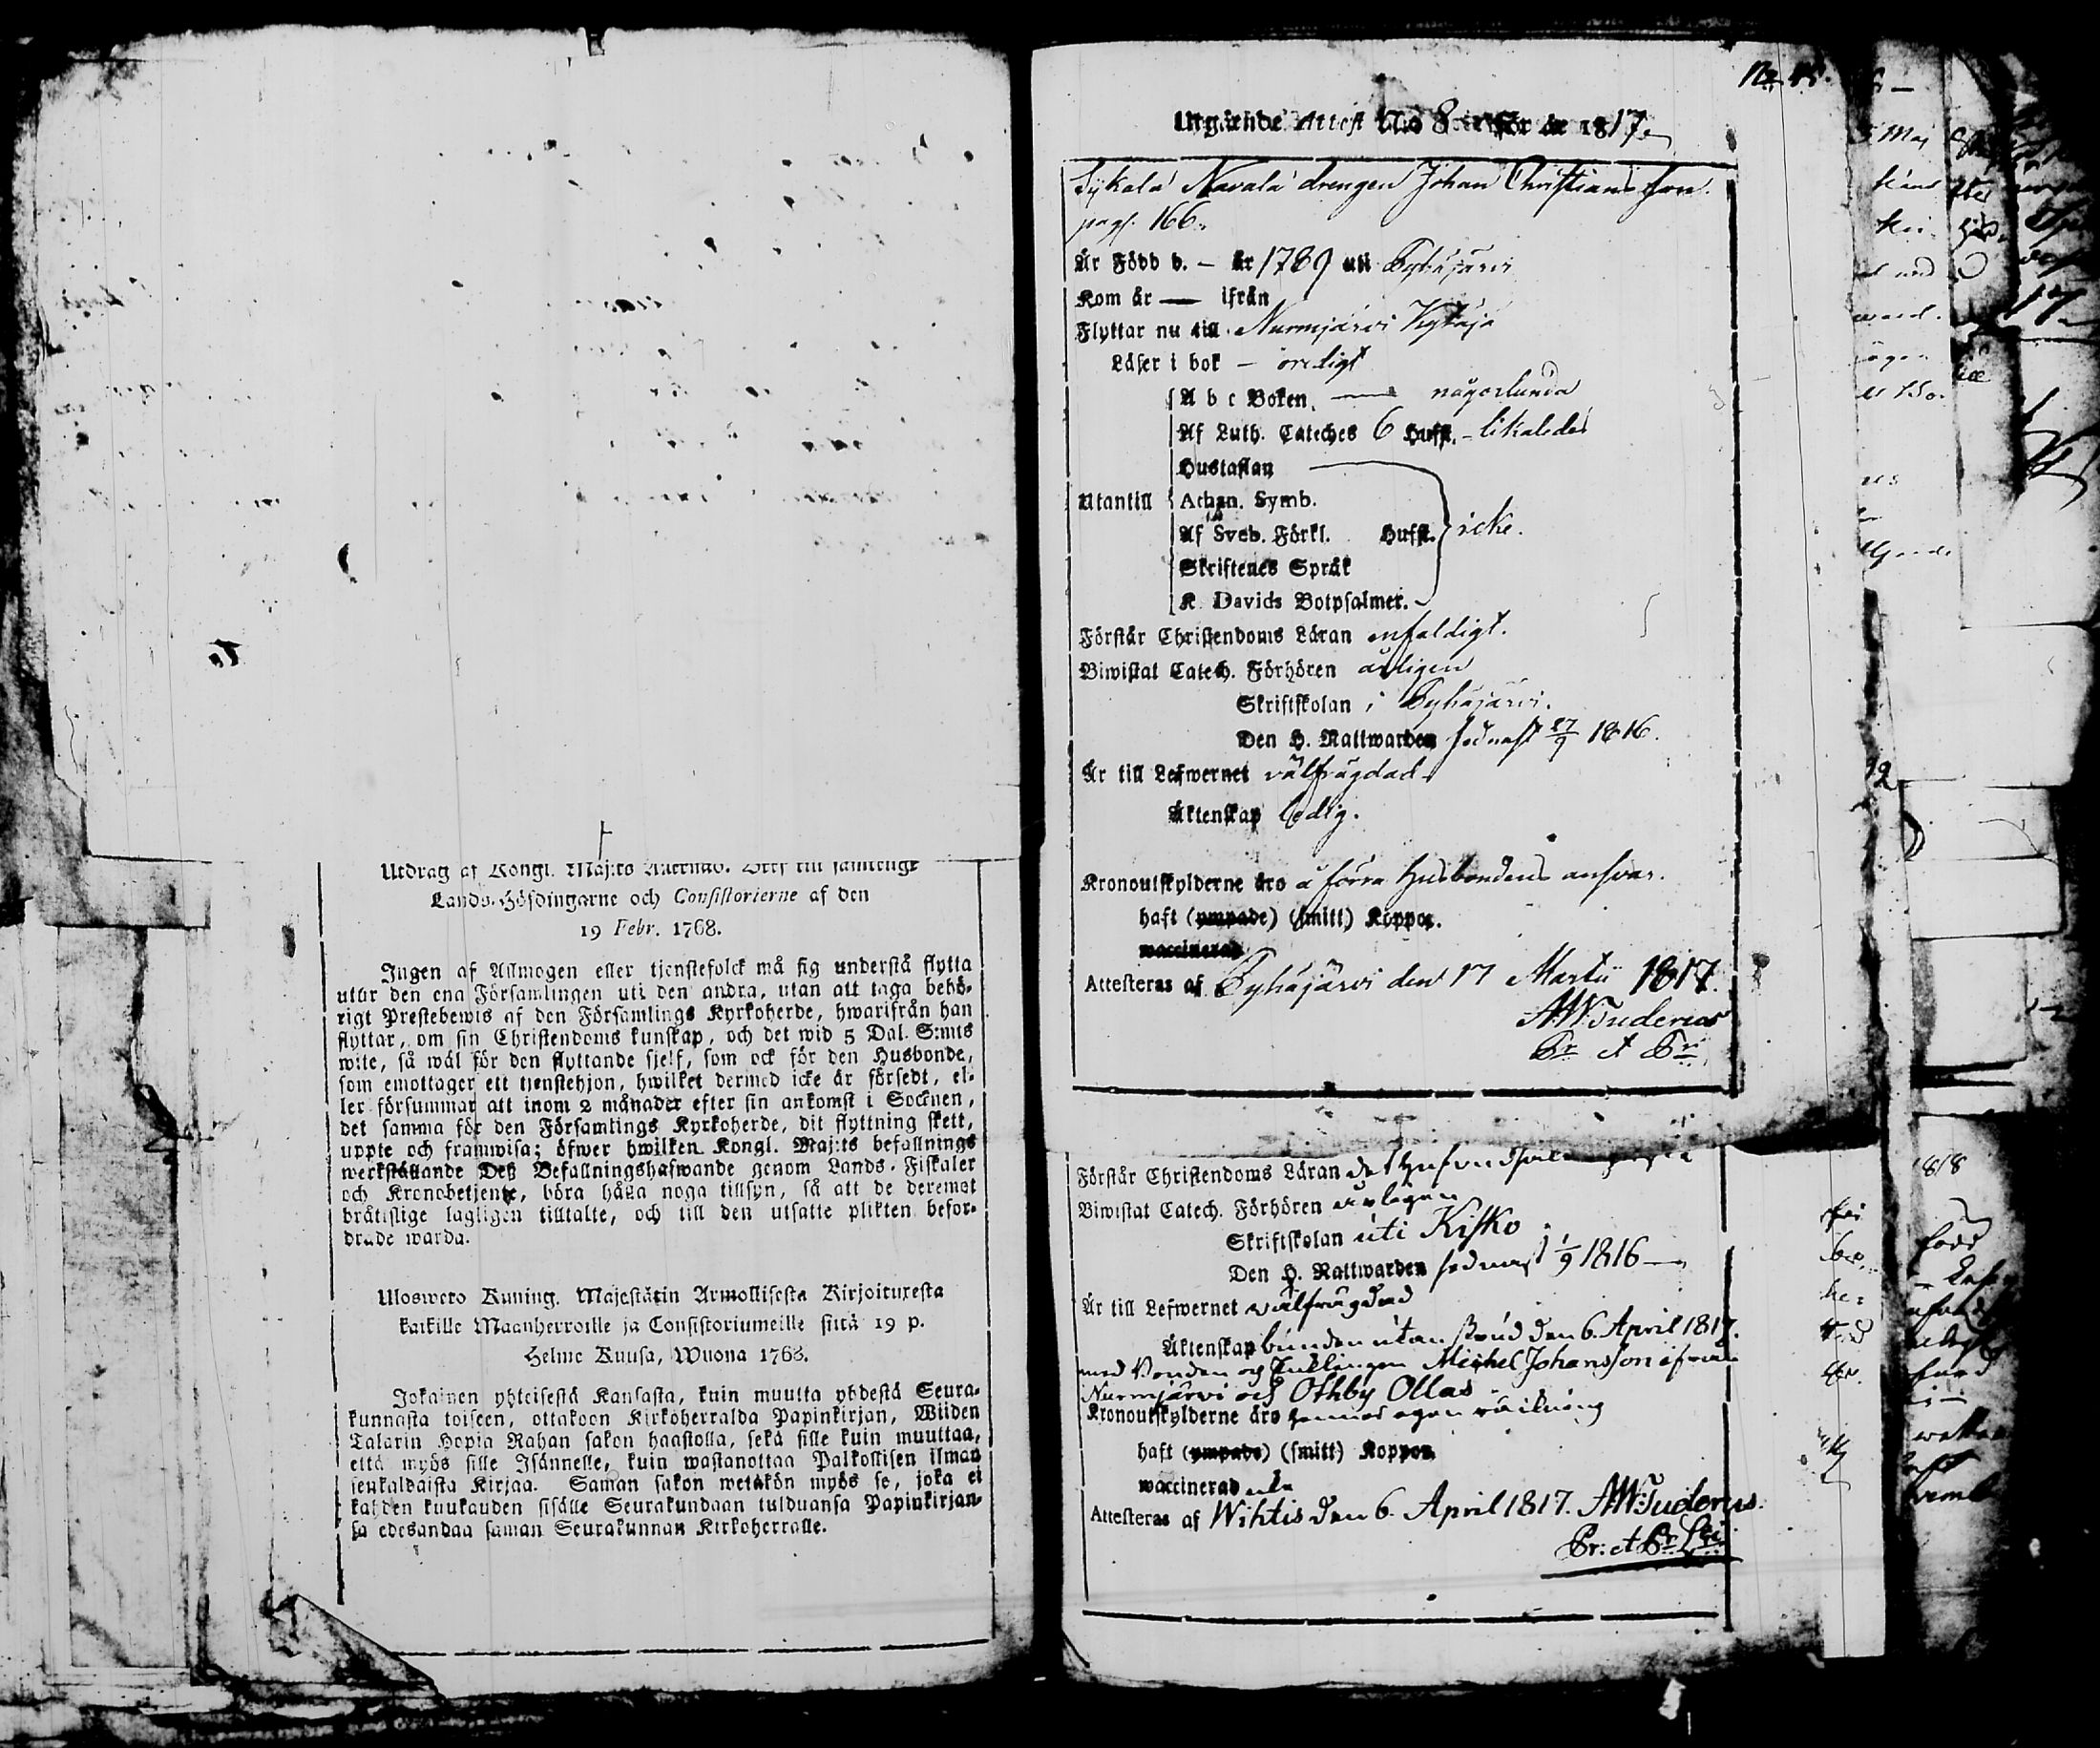 Utdrag af Kongl. Maj:ts Allernåd. Bref till samtelige
Lands-Höfdingarne och Consistorierne af den
19 Febr. 1768.
Ingen af Allmogen eller tjenstefolck må sig understå flytta
utur den ena Församlingen uti den andra, utan att taga behö-
rigt Prestebewis af den Församlings Kyrkoherde, hwarifrån han
flyttar, om sin Christendoms kunskap, och det wid 5 Dal. S:mts
wite, så wäl för den flyttande sjelf, som ock för den Husbonde,
som emottager ett tjenstehjon, hwilket dermed icke är försedt, el-
ler försummar att inom 2 månader efter sin ankomst i Socknen,
det samma för den Församlings Kyrkoherde, dit flyttning skett,
uppte och framwisa; öfwer hwilken Kongl. Maj:ts befallnings
werkställande Deß Befallningshafwande genom Lands-Fiskaler
och Kronobetjente, böra hålla noga tillsyn, så att de deremot
bråtislige lagligen tilltalte, och till den utsatte plikten befor-
drade warda.
Uloswero Kuning. Majestätin Armollisesta Kirjoituxesta
kaikille Maanherroille ja Consistoriumeille siitä 19 p.
Helme Kuusa, Wuona 1768.
Jokainen yhteisestä Kansasta, kuin muutta yhdestä Seura-
kunnasta toiseen, ottakoon Kirkoherralda Papinkirjan, Wiiden
Talarin Hopia Rahan sakon haastolla, sekä sille kuin muuttaa,
että myös sille Isännelle, kuin wastanottaa Palkollisen ilman
senkaldaista Kirjaa. Saman sakon wetäkön myös se, joka ei
kahden kuukauden sisälle Seurakundaan tulduansa Papinkirjan-
sa edesandaa saman Seurakunnan Kirkoherralle.
Utgående Attest No 8 för år 1817
Navala drengen Johan Christiansson.
pag. 166.
Är Född d. — år 1789 uti Pyhäjärvi
Kom år — ifrån
Flyttar nu till Nurmijärvi Kytäjä
Läser i bok – oredigt
A b c Boken. — någorlunda
Af Luth. Cateches 6 Hufst. – likaledes
Hustaflan
Utantill Athan. Symb.
Af Sveb. Förkl. Hufst. icke.
Skriftenes Språk
K. Davids Botpsalmer.
Förstår Christendoms Läran enfaldigt.
Biwistat Catech. Förhören årligen
Skriftskolan i Pyhäjärvi.
Den H. Nattwarden sednast 27/9 1816.
Är till Lefwernet välfrägdad
Äktenskap ledig.
Kronoutskylderne äro å förra Husbondens answar.
haft (ympade) (smitt) Koppor.
waccinerad
Attesteras af Pyhäjärvi den 17 Martii 1817.
AW:Tuderus
Pr et Pr
Förstår Christendoms Läran
Biwistat Catech. Förhören årligen
Skriftskolan uti Kisko
Den H. Nattwarden sednast 1/9 1816 —
Är till Lefwernet välfrägdad
Äktenskap bunden utan den 6. April 1817.
med Bonden og Enklingen Michel Johansson ifrån
Nurmijärvi och Othby Ollas
Kronoutskylderne äro hennes egen
haft (ympade) (smitt) Koppor
waccinerad
Attesteras af Wihtis den 6. April 1817. AW:Tuderus.
Pr: et Pr
1818